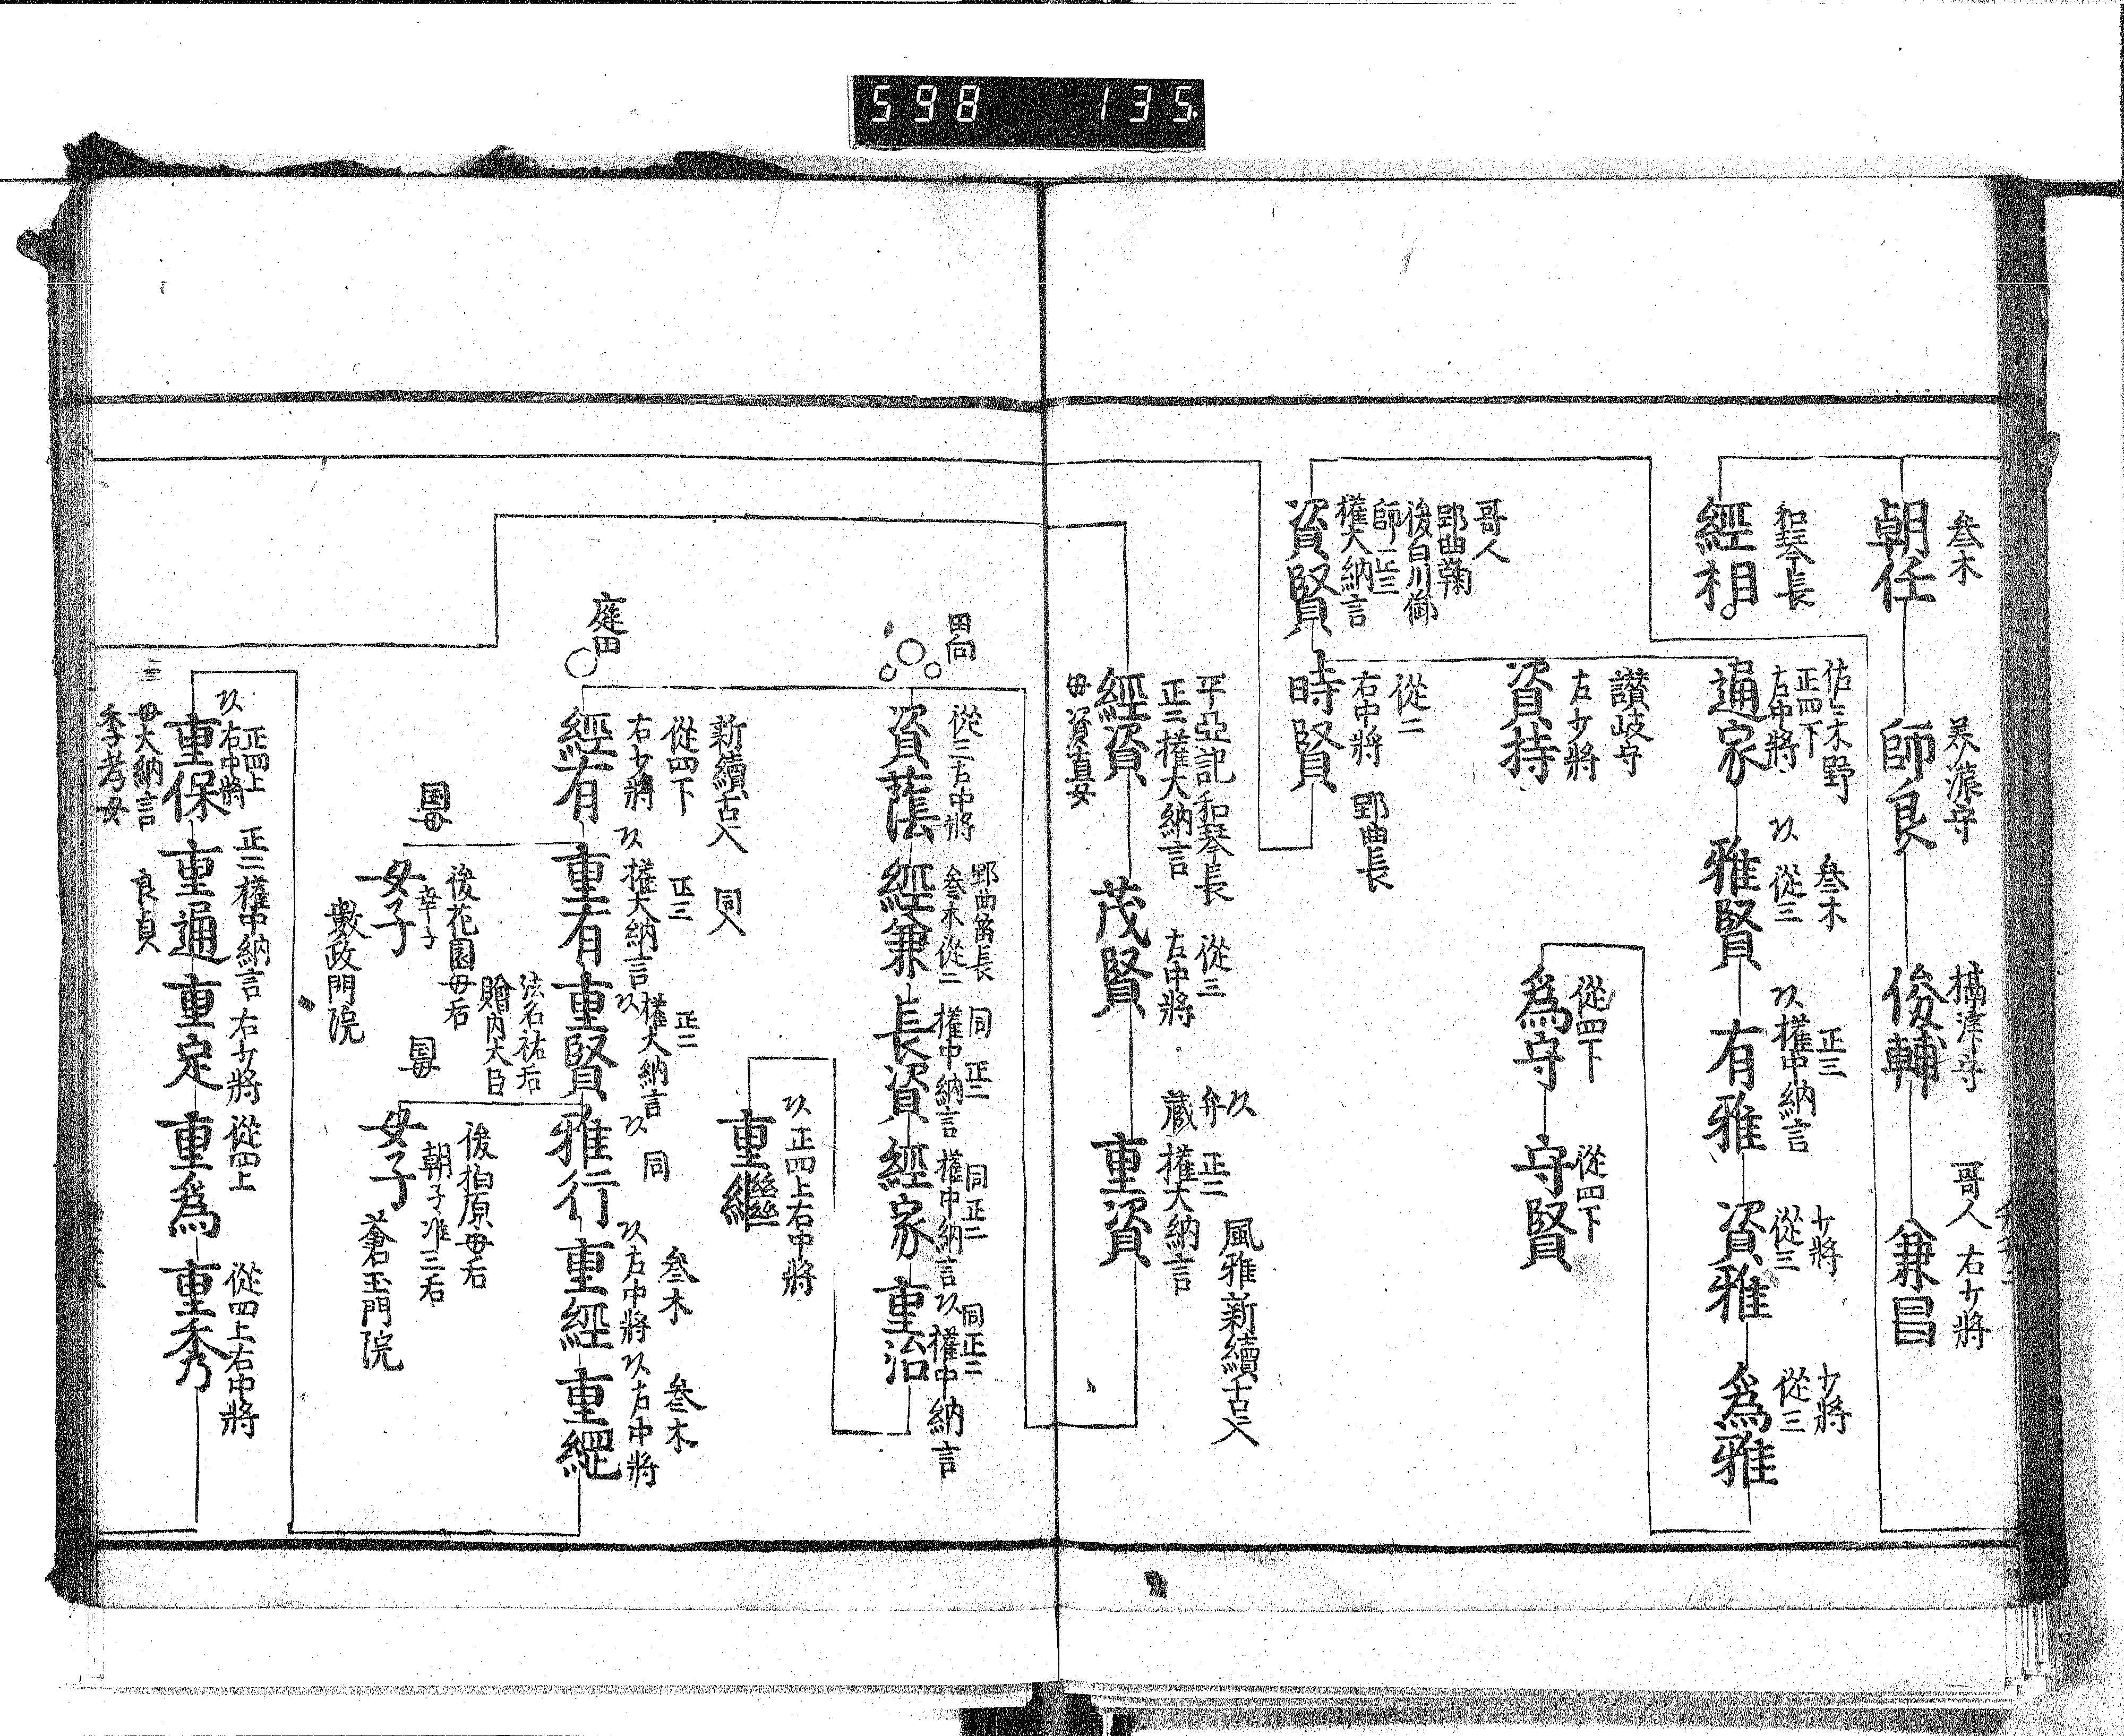 598 135
叅木
朝任
美濃守
師良
攝津守
俊輔
哥人 右少將
兼昌
和琴長
經相
佐々木野
正四下
左中將
遍家
叅木
従三
雅賢
正三
权中納言
有雅
少將
従三
資雅
少將
従三
為雅
讃岐守
左少將
資持
従四下
為守
従四下
守賢
哥人
郢曲鞠
後白川御
師 正二
權大納言
資賢
従二
右中將
時賢
郢曲長
平亞記 和琴長
正二 權大納言
經資
母 資直女
従三
左中將
茂賢
弁 正二
蔵 權大納言
重資
風雅新續古入
田向
従三 右中將
資蔭
郢曲笛長
叅木 従二
經兼
同 正二
權中納言
長資
同 正二
權中納言
經家
同 正二
權中納言
重治
正四上右中將
重継
庭田
新續古入 同入
従四下
右少將
經有
正三
權大納言
重有
正二
權大納言
重賢
同
雅行
叅木
右中將
重經
叅木
右中將
重継
法名祐后
贈内大臣
国母
後花園母后
幸子
女子
敷政門院
国母
後柏原母后
朝子 准三后
女子
蒼玉門院
正四上
右中將
重保
母大納言
季孝女
正二 權中納言
重通
良貞
右少將
重定
従四上
重為
従四上右中將
重秀